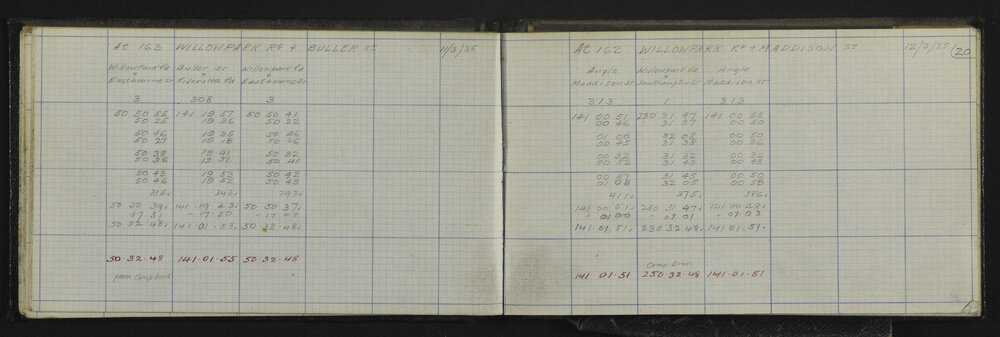 At 163 WILLOWPARK Rd + BULLER ST. 11/3/35
Willowpark Rd Buller St Willowpark Rd
+ + +
Eastbourne St Riverslea Rd Eastbourne St
3 308 3
50 50 55 141 19 57 50 50 41
50 25 19 36 50 22
50 46 19 35 50 46
50 27 19 18 50 26
50 38 19 41 50 32
50 36 19 51 50 41
50 43 19 53 50 42
50 46 19 52 50 43
316 343 293
50 50 39 141 19 43 50 50 37
-17 51 -17 50 -17 49
50 32 48 141 01 53 50 32 48
50.32.48 141.01.55 50.32.48
from Comp book
At 162 WILLOWPARK Rd + MADDISON St 12/3/35 20
Angle Willowpark Rd Angle
Maddison St Southampton St Maddison St
313 1 313
141 00 51 230 31 47 141 00 58
00 46 31 37 00 50
01 00 32 08 00 50
00 45 31 38 00 36
00 36 31 32 00 36
00 52 31 43 00 48
00 57 31 45 00 50
01 08 32 05 00 58
411 375 386
141 00 51 230 31 47 141 00 48
+ 01 00 01 01 + 01 03
141 01 51 230 32 48 141 01 51
Comp Book
141 01 51 250 32 48 141 01 51